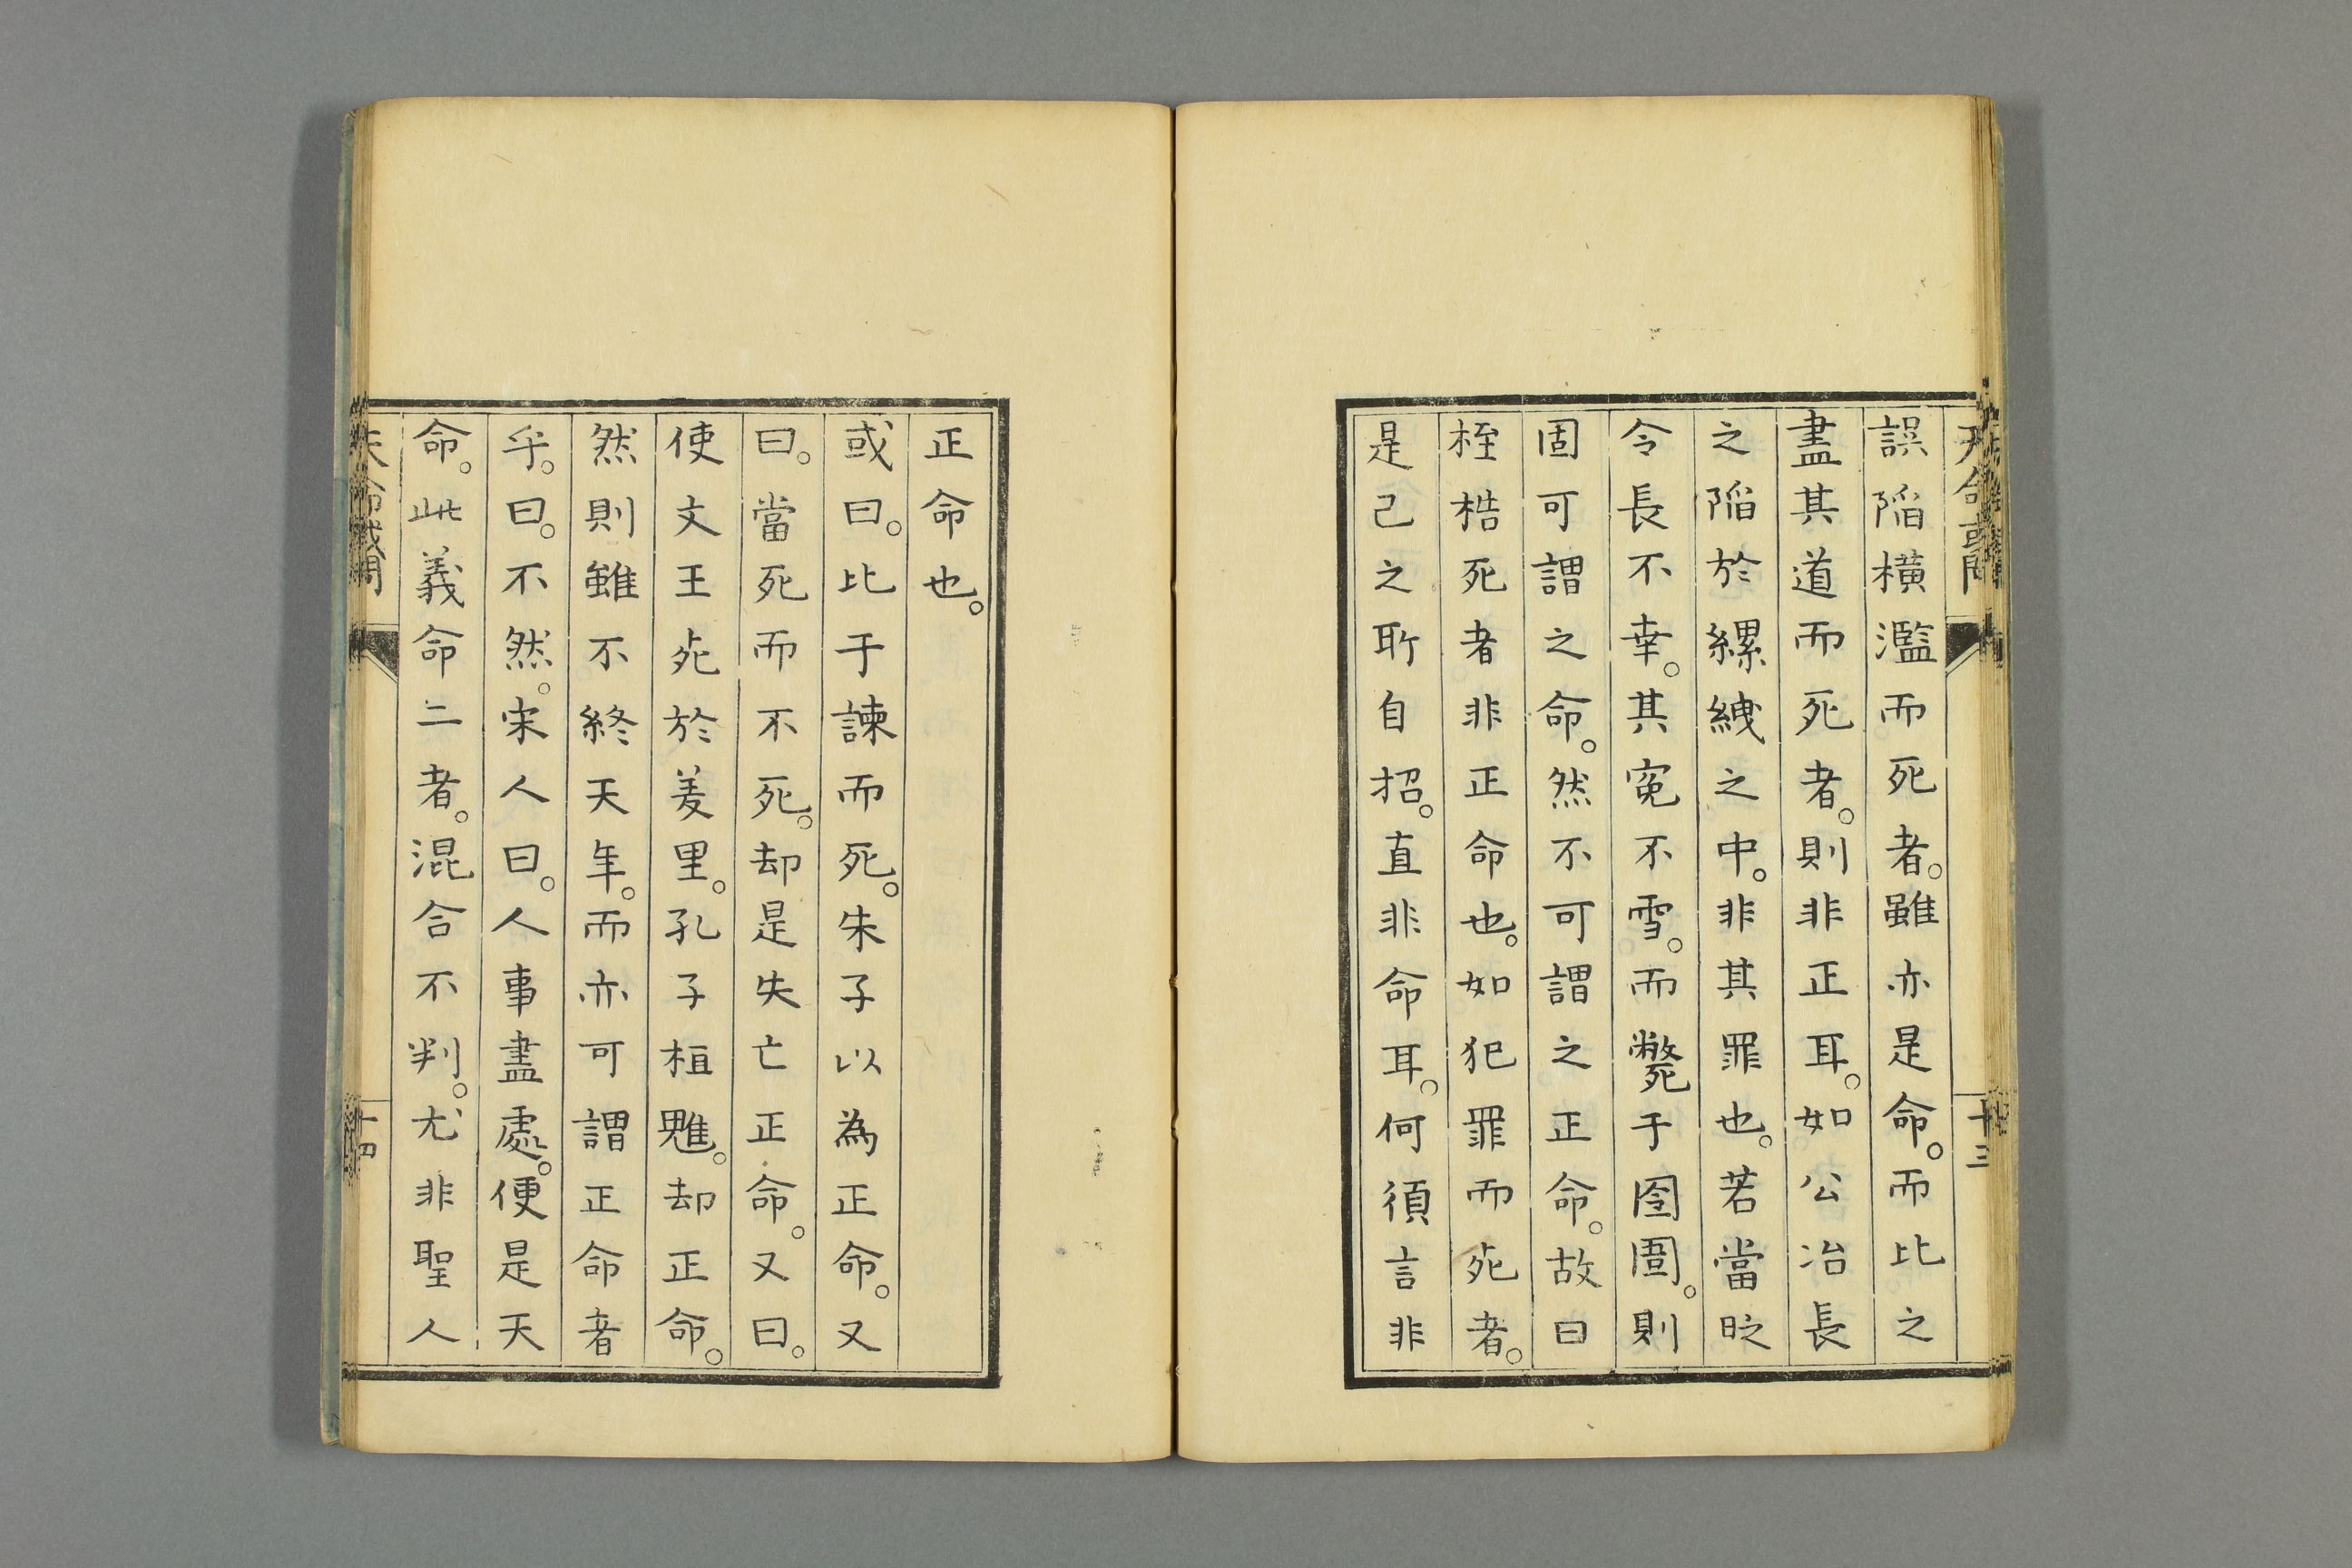 誤陷橫濫而死者。雖亦是命。而比之
盡其道而死者。則非正耳。如公冶長
之陷於縲絏之中。非其罪也。若當眨
令長不幸。其寃不雪。而斃于囹圄。則
固可謂之命。然不可謂之正命。故曰
桎梏死者非正命也。如犯罪而死者。
是己之所自招。直非命耳。何須言非
十三
正命也。
或曰。比于諫而死。朱子以為正命。又
曰。當死而不死。却是失亡正命。又曰。
使文王死於羑里。孔子桓魋。却正命。
然則雖不終天年。而亦可謂正命者
乎。曰。不然。宋人曰。人事盡處。便是天
命。此義命二者。混合不判。尤非聖人
十四